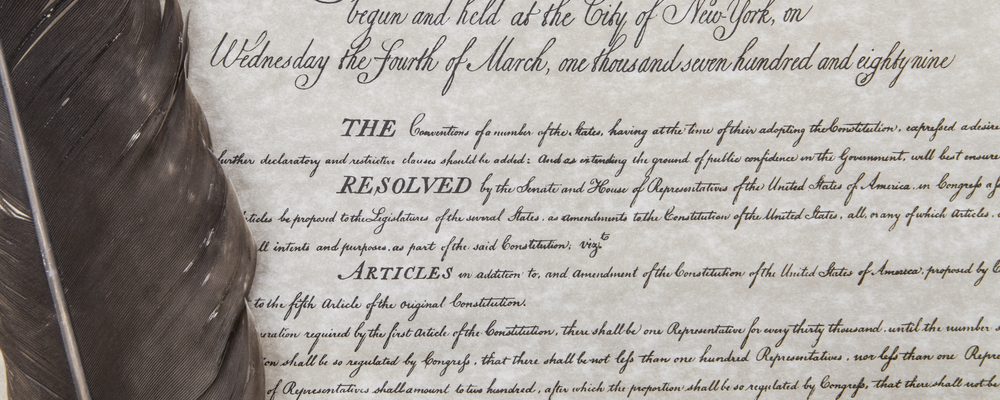 begun and held at the City of New-York, on
Wednesday the Fourth of March, one thousand seven hundred and eighty nine
THE Conventions of a number of the States, having at the time of their adopting the Constitution, expreſsed a desire
further declaratory and restrictive clauses should be added: And as extending the ground of public confidence in the Government, will best ensure
RESOLVED by the Senate and House of Representatives of the United States of America, in Congreſs
ticles be proposed to the Legislatures of the several States, as amendments to the Constitution of the United States, all, or any of which Articles,
ll intents and purposes, as part of the said Constitution; vizt
ARTICLES in addition to, and amendment of the Constitution of the United States of America, proposed by C
to the fifth Article of the original Constitution.
eration required by the first Article of the Constitution, there shall be one Representative for every thirty thousand, until the number
on shall be so regulated by Congreſs, that there shall be not leſs than one hundred Representatives, nor leſs than one Repre
of Representatives shall amount to two hundred, after which the proportion shall be so regulated by Congreſs, that there shall not be